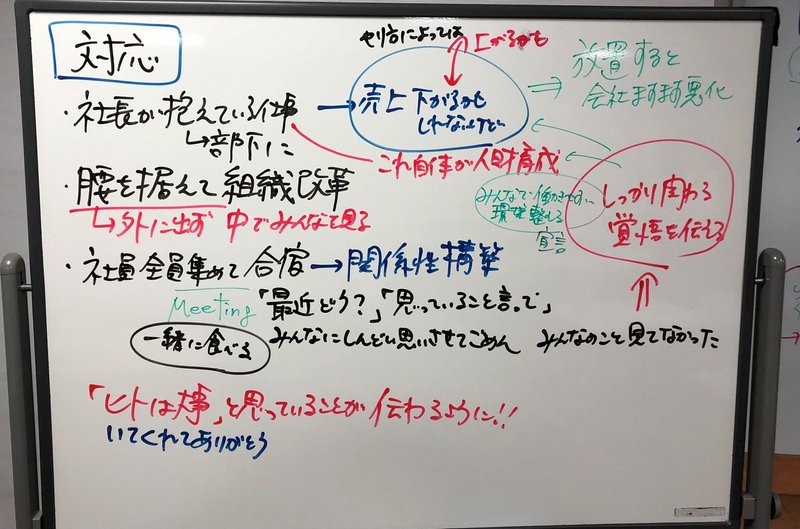 対応
やり方によっては
上がるかも
・社長が抱えている仕事
→部下に
→売上下がるかも
しれないけど
⇒放置すると
会社ますます悪化
これ自体が人財育成
・腰を据えて組織改革
→外に出ず 中でみんなで見る
みんなで働きやすい
環境整える
宣言
しっかり関わる
覚悟を伝える
・社員全員集めて合宿→関係性構築
Meeting「最近どう?」「思っていること言って」
一緒に食べる みんなにしんどい思いさせてごめん みんなのこと見てなかった
「ヒトは大事」と思っていることが伝わるように!!
いてくれてありがとう